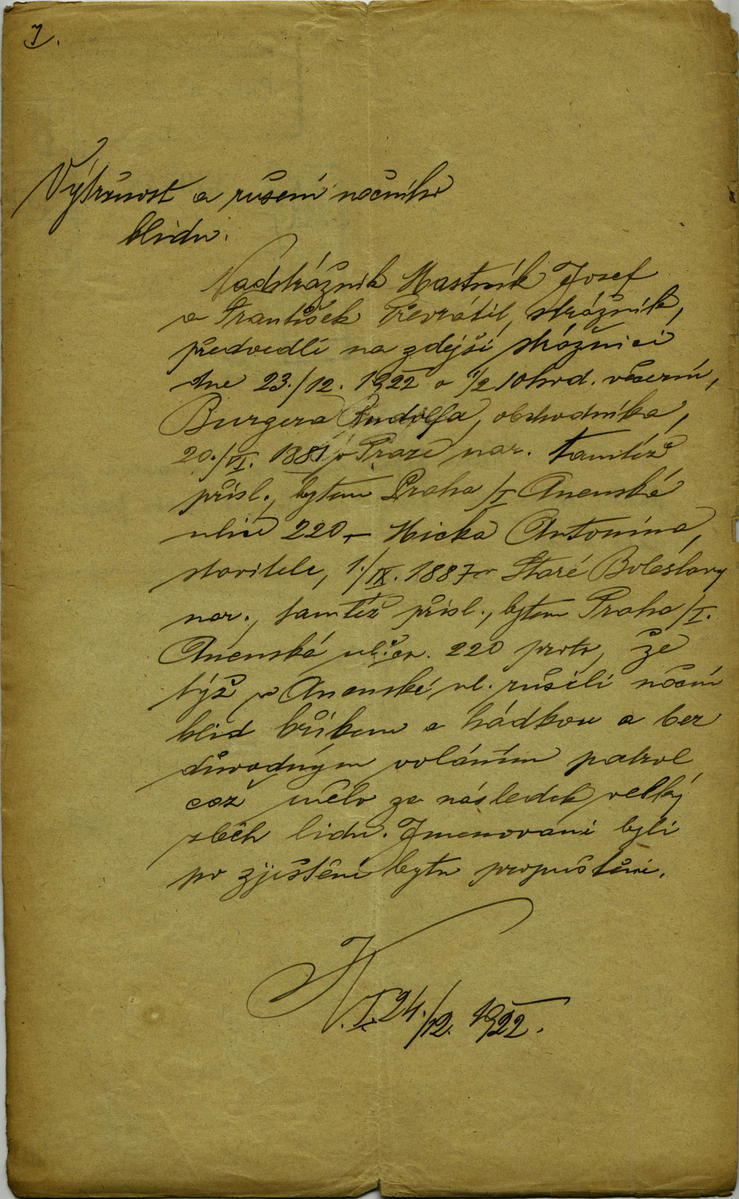 7.
Výtržnost a rušení nočního
klidu.
Nadstrážník Mastník Josef
a František Převrátil, strážník,
předvedli na zdejší strážnici
dne 23./12. 1922 o 1/2 10 hod. večerní,
Burgera Rudolfa, obchodníka,
20./VI. 1881 v Praze nar. tamtéž
přísl., bytem Praha/I Anenská
ulice 220 – Hicka Antonína,
stavitele, 1./IX. 1887 v Staré Boleslavy
nar., tamtéž přísl., bytem Praha/I.
Anenská ul. 220 proto, že
týž v Anenské ul. rušili noční
klid křikem a hádkou a bez
důvodným voláním patrol
což mělo za následek velký
sběh lidu. Jmenovaní byli
po zjištění bytu propuštěni.
K. I. 24./12. 1922.